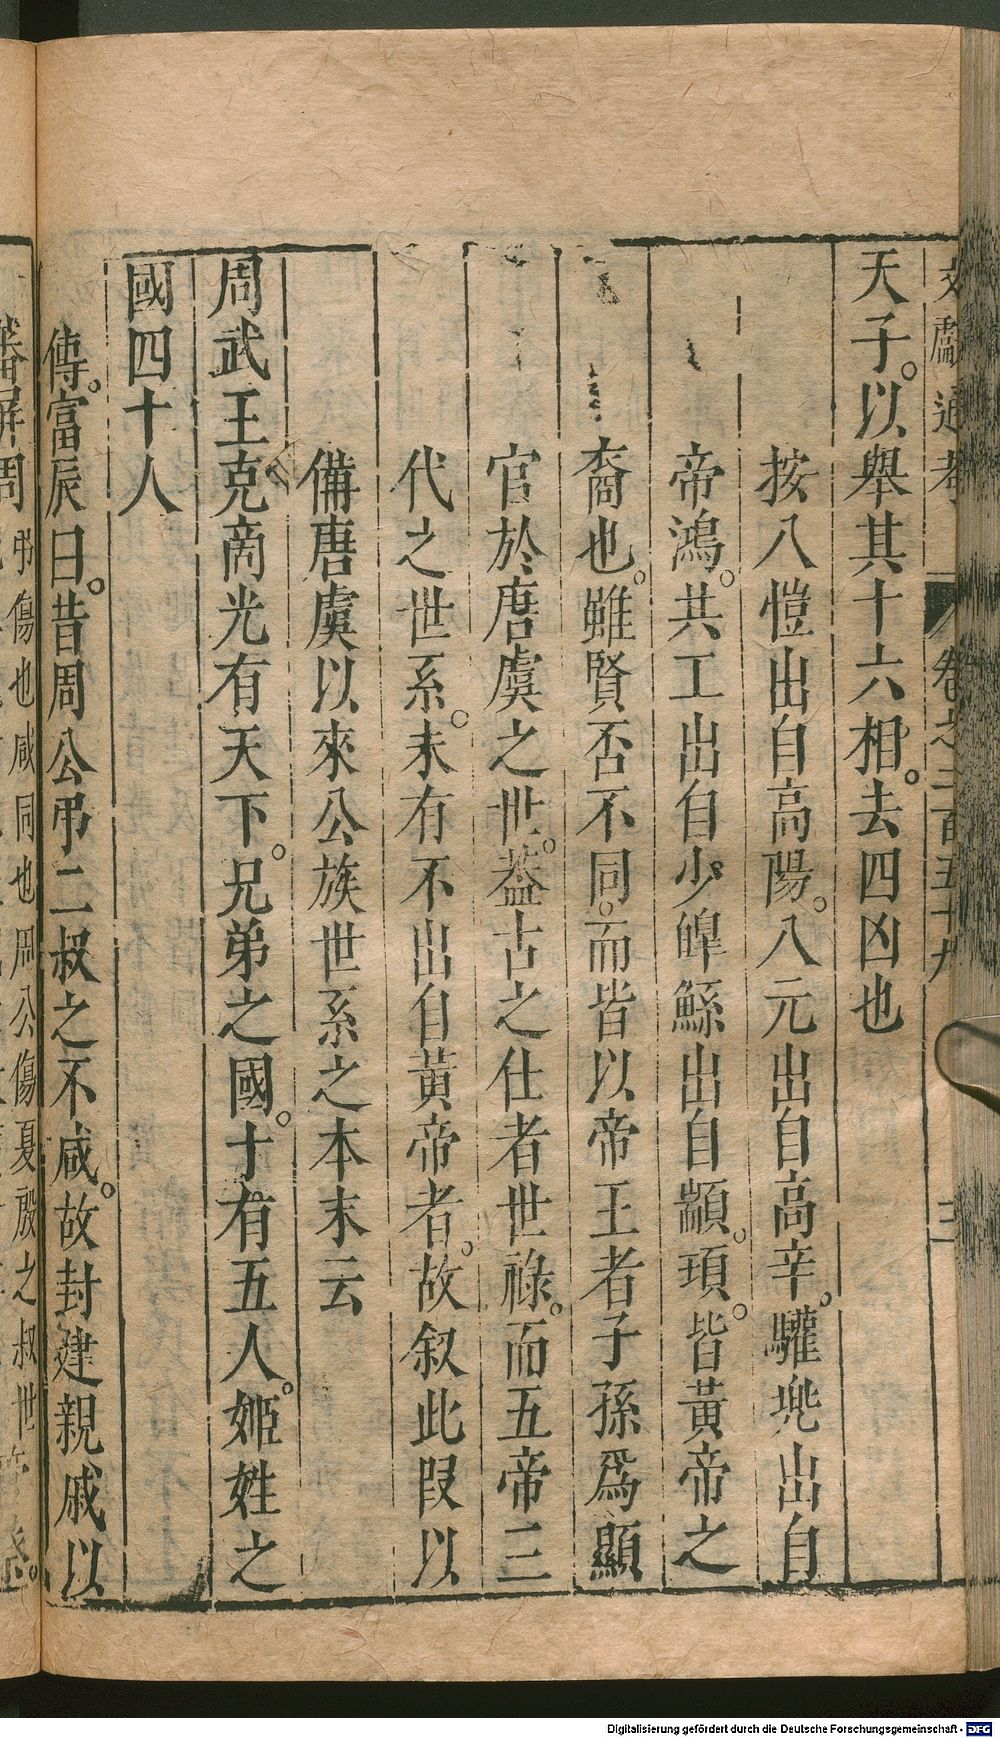 文獻通考 卷之二百五十九 三
天子。以舉其十六相。去四凶也
按八愷出自高陽。八元出自高辛。驩兜出自
帝鴻。共工出自少皥鯀出自顓。頊。皆黃帝之
裔也。雖賢否不同。而皆以帝王者子孫爲顯
官於唐虞之世。葢古之仕者世祿。而五帝三
代之世系。未有不出自黃帝者。故叙此叚以
備唐虞以來公族世系之本末云
周武王克商光有天下。兄弟之國。十有五人。姬姓之
國四十人
傳。富辰曰。昔周公弔二叔之不咸。故封建親戚以
蕃屏周 弔傷也咸同也周公傷夏殷之叔世
Digitalisierung gefördert durch die Deutsche Forschungsgemeinschaft - DFG